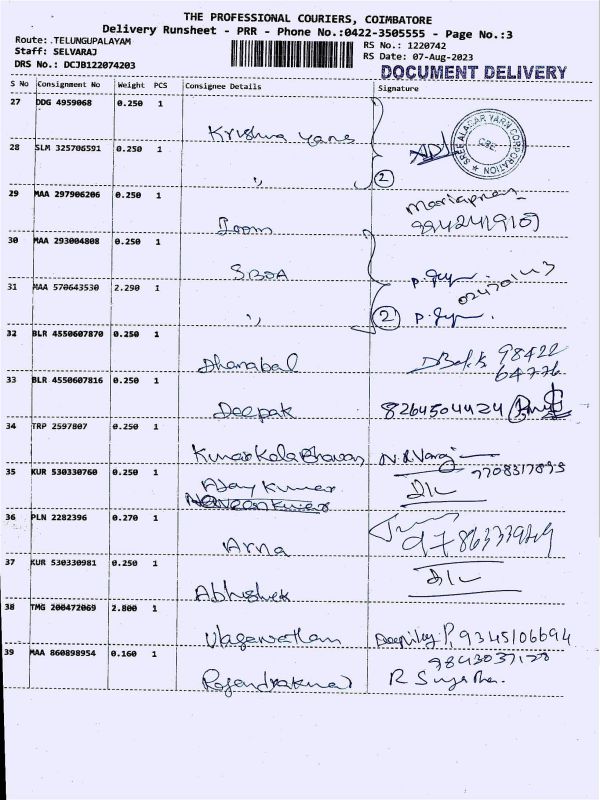 THE PROFESSIONAL COURIERS, COIMBATORE
Delivery Runsheet - PRR - Phone No.:0422-3505555 - Page No.:3
Route: TELUNGUPALAYAM
Staff: SELVARAJ
DRS No.: DCJB122074203
RS No.: 1220742
RS Date: 07-Aug-2023
DOCUMENT DELIVERY
S No Consignment No Weight PCS Consignee Details Signature
27 DDG 4959068 0.250 1
Krishna yarns
SREE ALAGAR YARN CORPORATION
CBE.
28 SLM 325706591 0.250 1
" 2
29 MAA 297906206 0.250 1
Mariappan
9942419109
30 MAA 293004808 0.250 1
31 MAA 570643530 2.290 1
" 2
32 BLR 4550607870 0.250 1
Dhanabal 98422
64776
33 BLR 4550607816 0.250 1
Deepak 8264504424
34 TRP 2597807 0.250 1
Kumar Kala Bhavan N.R.Varaj
35 KUR 530330760 0.250 1 7708317893
Ajay Kumar
Naveen Kumar
36 PLN 2282396 0.270 1
Arna
37 KUR 530330981 0.250 1
Abhishek
38 TMG 200472069 2.800 1
9345106694
39 MAA 860898954 0.160 1 9843037128
Rajendrakumar